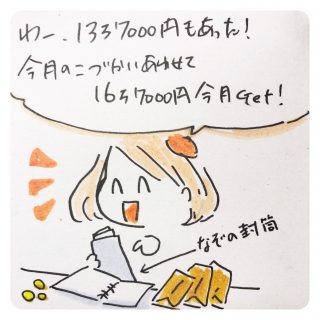 わー、13万7000円もあった!
今月のこづかいあわせて
16万7000円今月Get!
なぞの封筒